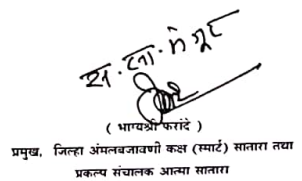 ( भाग्यश्री फरांदे )
प्रमुख, जिल्हा अंमलबजावणी कक्ष (स्मार्ट) सातारा तथा
प्रकल्प संचालक आत्मा सातारा